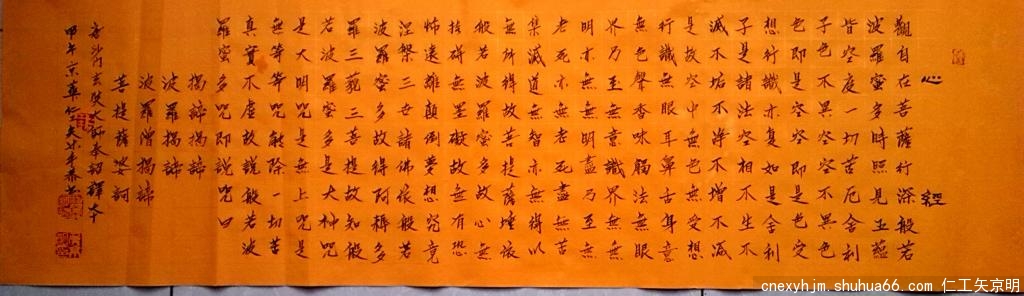 心經
觀自在菩薩行深般若
波羅蜜多時照見五蘊
皆空度一切苦厄舍利
子色不異空空不異色
色即是空空即是色受
想行識亦复如是舍利
子是諸法空相不生不
滅不垢不净不增不减
是故空中無色無受想
行識無眼耳鼻舌身意
無色聲香味觸法無眼
界乃至無意識界無無
明亦無無明盡乃至無
老死亦無老死盡無苦
集滅道無智亦無得以
無所得故菩提薩埵依
般若波羅蜜多故心無
挂礙無罣礙故無有恐
怖遠離顛倒夢想究竟
涅槃三世諸佛依般若
波羅蜜多故得阿耨多
羅三藐三菩提故知般
若波羅蜜多是大神咒
是大明咒是無上咒是
無等等咒能除一切苦
真實不虚故說般若波
羅蜜多咒即說咒曰
揭諦揭諦
波羅揭諦
波羅僧揭諦
菩提薩婆訶
唐沙门玄奘大師奉詔譯本
甲午京華仁工矢
cnexyhjm.shuhua66.com 仁工矢京明